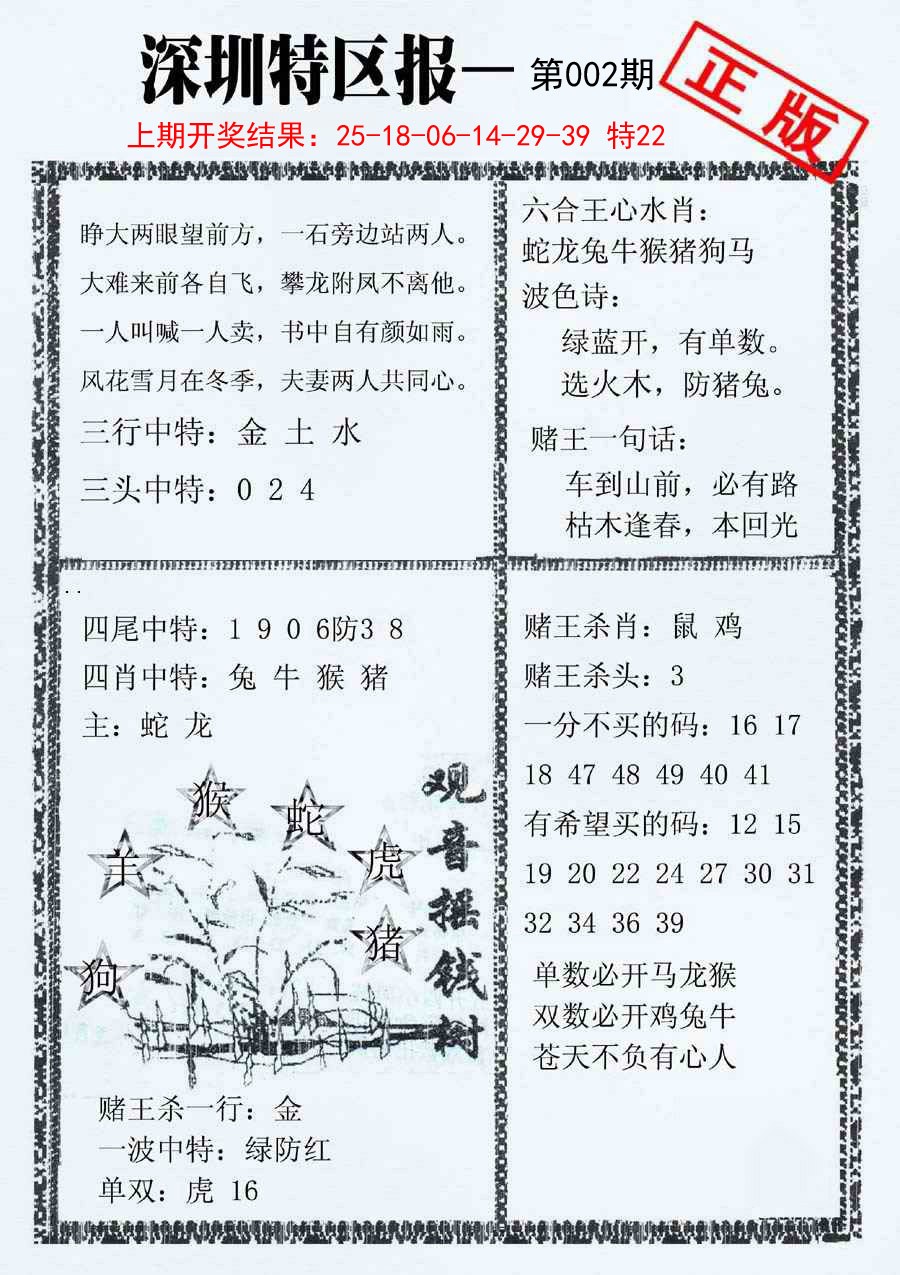 深圳特区报一 第002期
正版
上期开奖结果：25-18-06-14-29-39 特22
睁大两眼望前方，一石旁边站两人。
大难来前各自飞，攀龙附凤不离他。
一人叫喊一人卖，书中自有颜如雨。
风花雪月在冬季，夫妻两人共同心。
三行中特：金 土 水
三头中特：0 2 4
六合王心水肖：
蛇龙兔牛猴猪狗马
波色诗：
绿蓝开，有单数。
选火木，防猪兔。
赌王一句话：
车到山前，必有路
枯木逢春，本回光
四尾中特：1 9 0 6防3 8
四肖中特：兔 牛 猴 猪
主：蛇 龙
猴
蛇
羊
虎
猪
狗
观音摇钱树
赌王杀一行：金
一波中特：绿防红
单双：虎 16
赌王杀肖：鼠 鸡
赌王杀头：3
一分不买的码：16 17
18 47 48 49 40 41
有希望买的码：12 15
19 20 22 24 27 30 31
32 34 36 39
单数必开马龙猴
双数必开鸡兔牛
苍天不负有心人